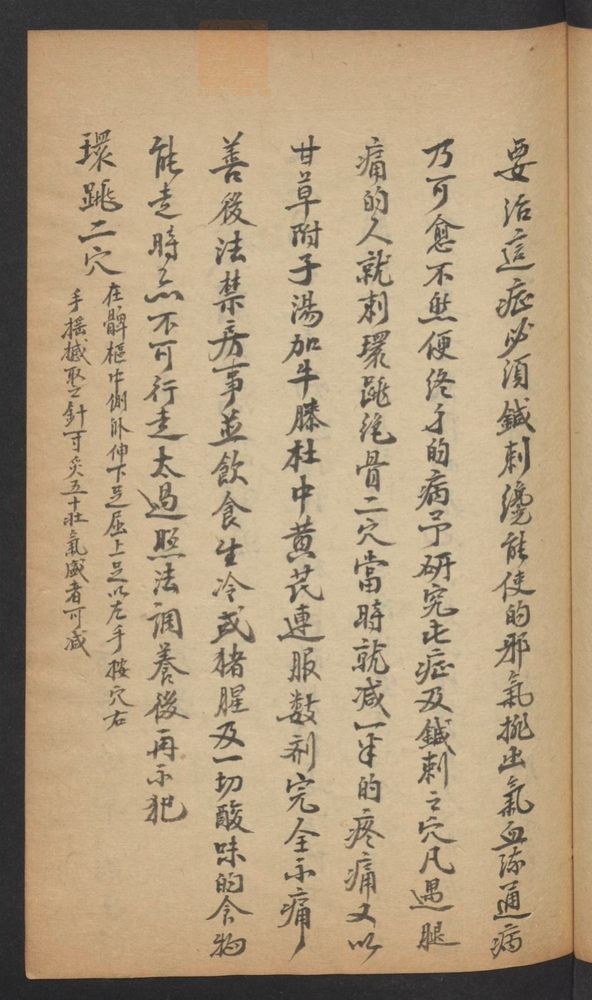 要治這症必須鍼刺纔能使的邪氣挑出氣血疏通病
乃可愈不然便終身的病予研究此症及鍼刺之穴凡遇腿
痛的人就刺環跳絕骨二穴當時就减一半的疼痛又以
甘草附子湯加牛膝杜中黄芪連服数剂完全不痛
善後法禁房事並飲食生冷或猪腥及一切酸味的食物
能走時亦不可行走太過照法调養後再不犯
環跳二穴
在髀樞中側卧伸下足屈上足以左手按穴右
手摇撼取之針可灸五十壯氣盛者可减